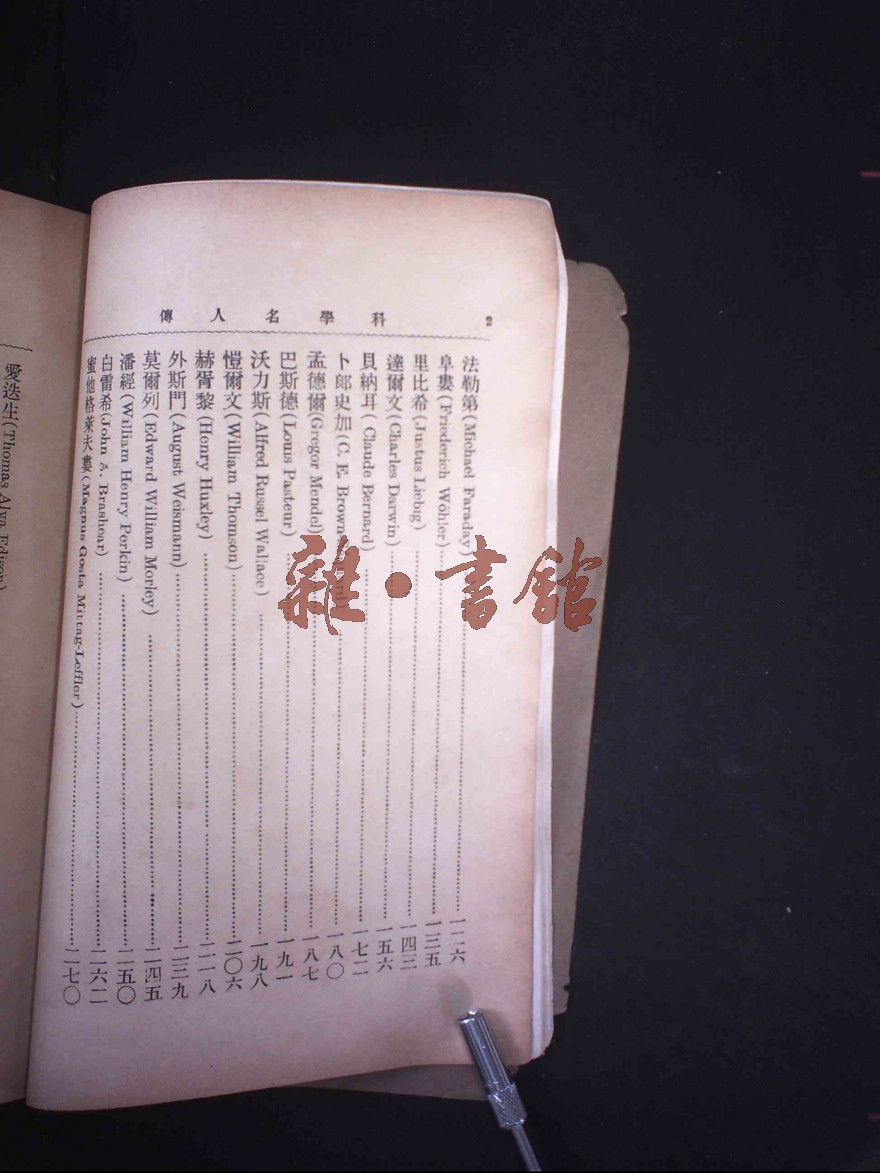 科學名人傳
2
法勒第(Michael Faraday)……一二六
阜婁(Friederich Wöhler)……一三五
里比希(Justus Liebig)……一四三
達爾文(Charles Darwin)……一五六
貝納耳(Claude Bernard)……一七二
卜郎史加(C. E. Brown……一八〇
孟德爾(Gregor Mendel)……一八七
巴斯德(Louis Pasteur)……一九一
沃力斯(Alfred Russel Wallace)……一九八
愷爾文(William Thomson)……二〇六
赫胥黎(Henry Huxley)……二一八
外斯門(August Weismann)……二三九
莫爾列(Edward William Morley)……二四五
潘經(William Henry Perkin)……二五〇
白雷希(John A. Brashear)……二六二
蜜他格萊夫婁(Magnus Gosta Mittag-Leffler)……二七〇
愛迭生(Thomas Alva Edison)
雜·書館